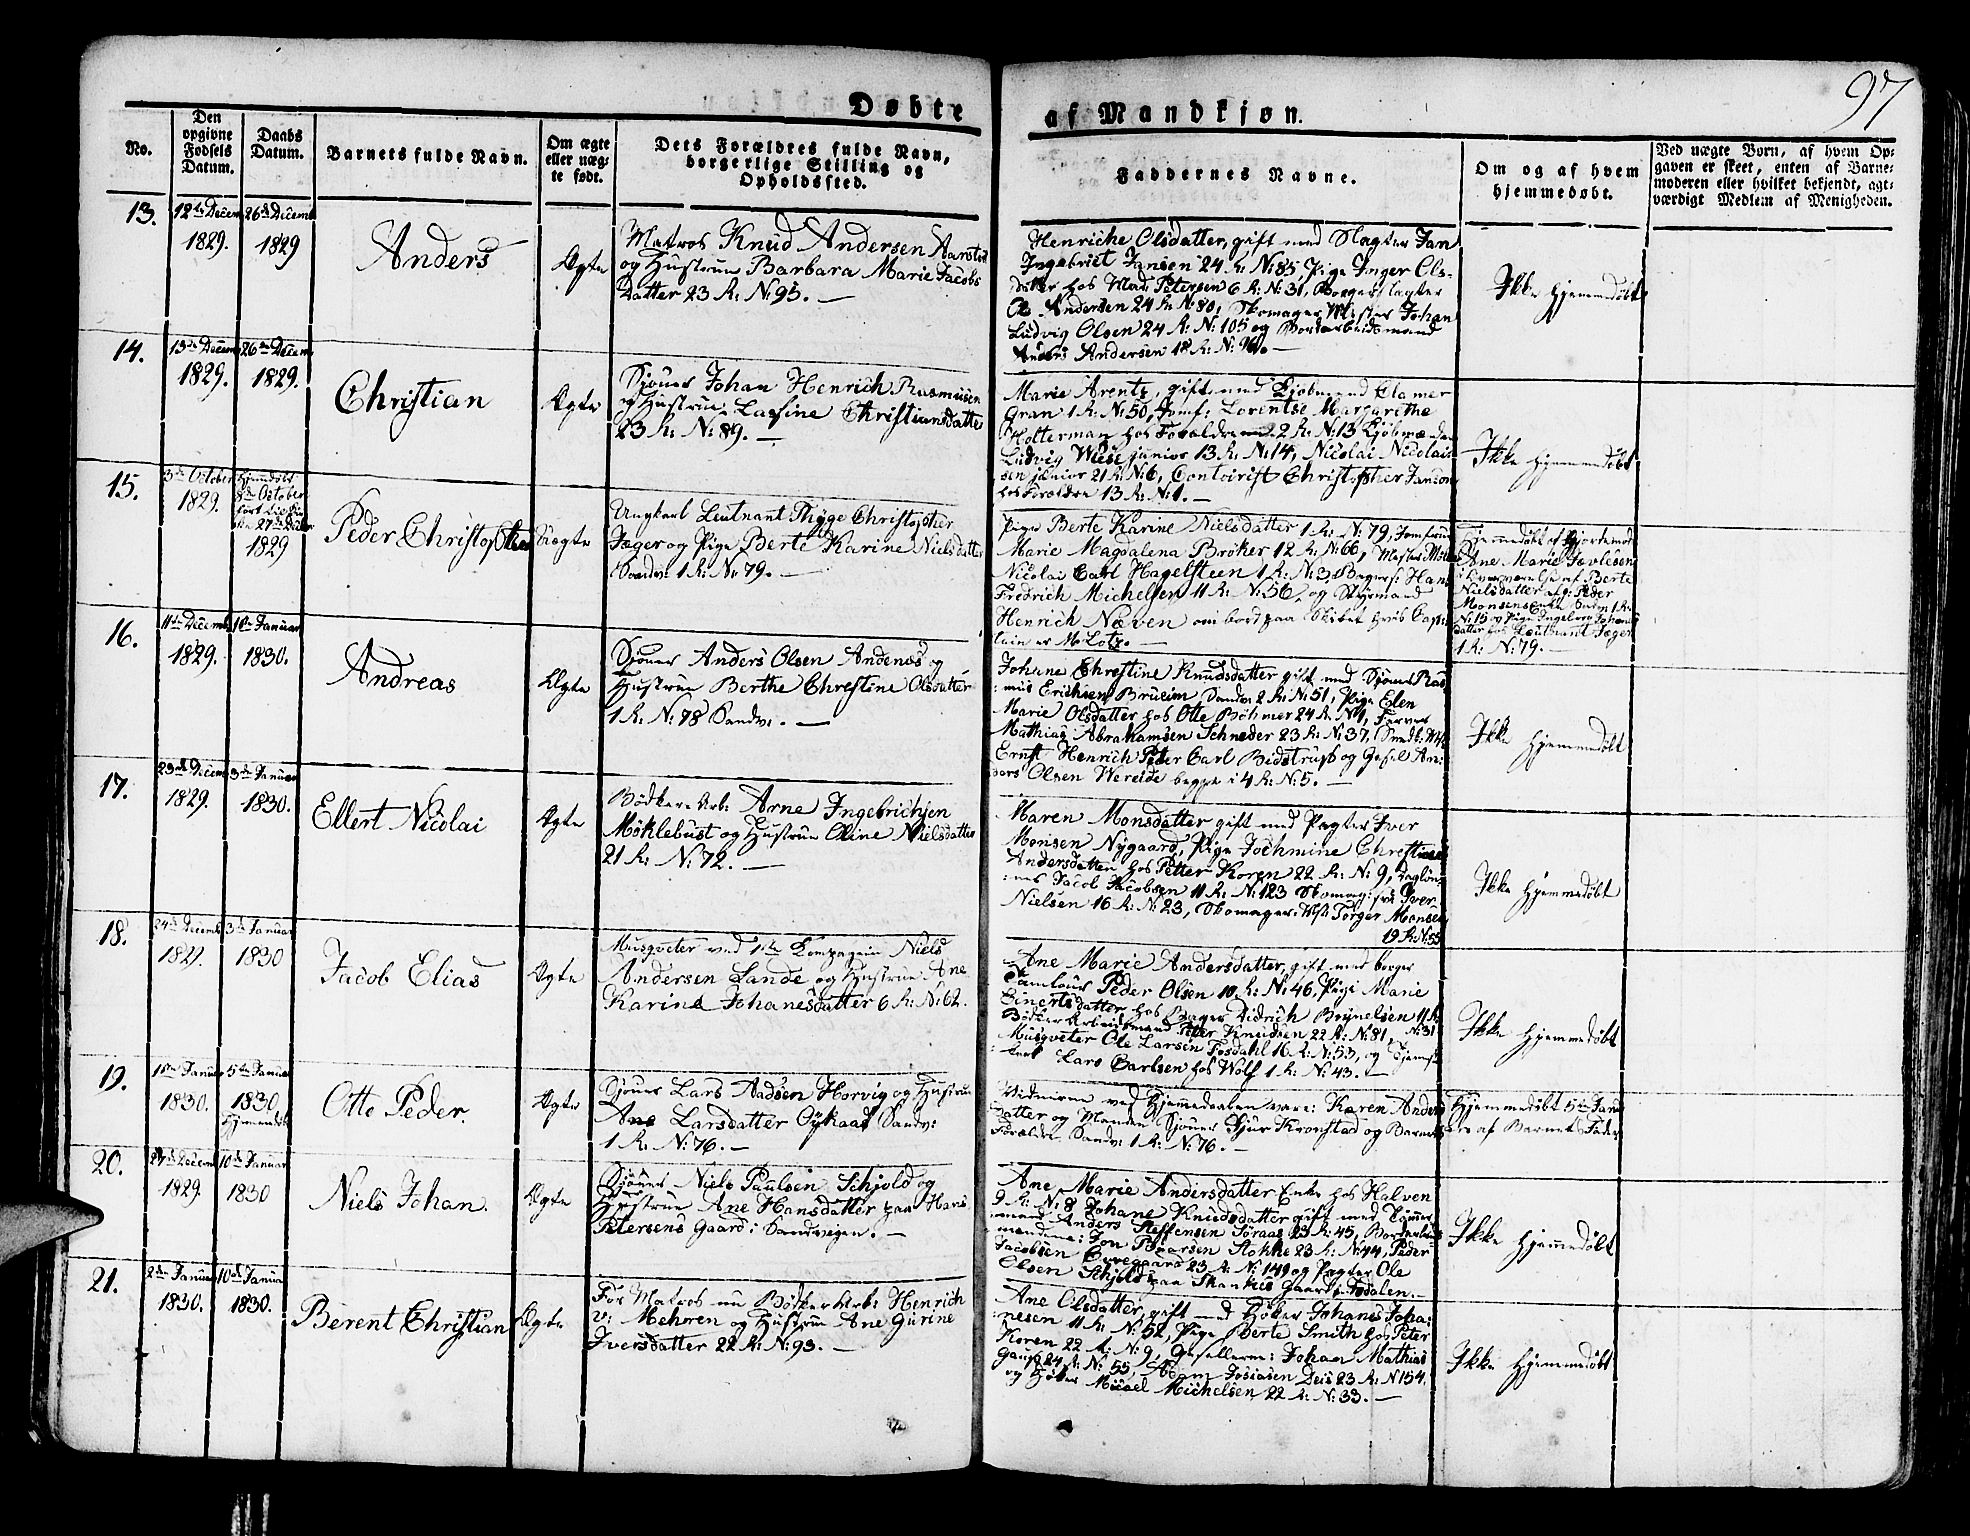 97
Døbte af Mandkjøn.
No.
Den opgivne Fødsels Datum.
Daabs Datum.
Barnets fulde Navn.
Om ægte eller uæg-
te født.
Dets Forældres fulde Navn,
borgerlige Stilling og
Opholdssted.
Faddernes Navne.
Om og af hvem
hjemmedøbt.
Ved uægte Børn, af hvem Op-
gaven er skeet, enten af Barne-
moderen eller hvilket bekjendt, agt-
værdigt Medlem af Menigheden.
13.
12te Decemb
1829.
26de Decemb
1829
Anders
Ægte
Matros Knud Andersen Aarsted
og Hustrue Barbara Marie Jacobs
Datter 23 R: N: 95. —
Henriche Olsdatter, gift med Slagter Jan
Ingebrict Jansen 24 R: N: 85 Pige Inger Ols-
datter hos Mad: Petersen 6 R: N: 31, Borger Slagter
Ole Andersen 24 R: N: 80, Skomager Mester Johan
Ludvig Olsen 24 R: N: 105 og Bordarbeidsmand
Anders Andersen 18 R: N: 96. —
Ikke hjemmedøbt
14.
13de Decemb
1829.
26de Decemb
1829.
Christian
Ægte
Sjöuer Johan Henrich Rasmusen
og Hustrue Lasine Christiansdatter
23 R: N: 89. —
Marie Arentz, gift med Kjöbmand Clamer
Gran 1 R: N: 50, Jomf: Lorentse Margarethe
Holterman hos Forældrene 2 R: N: 13 Kjöbmænden
Ludvig Wiese junior 13 R: N: 14, Nicolai Nicolai-
sen junior 21 R: N: 6, Contoirist Christopher Janson
hos Forældre 13 R: N: 1. —
Ikke hjemmedøbt
15.
3de October
1829.
hjemdöbt
8de October
27de Decbr
1829
Peder Christopher
Uægte
Ungkarl Leutnant Thyge Christopher
Jæger og Pige Berte Karine Nielsdatter
Sandv: 1 R: N: 79. —
Pige Berte Karine Nielsdatter 1 R: N: 79, Jomfrue
Marie Magdalena Bröker 12 R: N: 66, Mester
Nicolai Carl Hagelsteen 1 R: N: 3, Bagers: Hans
Fredrich Michelsen 11 R: N: 56, og Styrmand
Henrich Næven om bord paa Skibet hvis Capi-
tain er M: Lotz. —
Hjemmedøbt af Hjortemod:
Ane Marie
i Overværelse af Berte
Nielsdatter afg: Peder
Monsens Enke Sandv: 1 R:
N: 15 og Pige Ingeborg Johans-
datter hos Leutnant Jæger
1 R: N: 79. —
16.
11te Decemb
1829.
1ste Januar
1830.
Andreas
Ægte
Sjöuer Anders Olsen Andenæs og
Hustrue Berthe Chrestine Olsdatter
1 R: N: 78 Sandv: . —
Johane Chrestine Knudsdatter gift med Sjöuer Ras-
mus Erichsen Brueim Sandv: 2 R: N: 51, Pige Elen
Marie Olsdatter hos Otte Böhmer 24 R: N: 1, Farver
Mathias Abrahamsen Schneder 23 R: N: 37, Smed:
Ernst Henrich Peder Carl Bidstrup og Gesel An-
ders Olsen Wereide begge i 4 R: N: 5. —
Ikke hjemmedøbt
17.
23de Decemb
1829.
3de Januar
1830.
Ellert Nicolai
Ægte
Bödker Arb: Arne Ingebrichsen
Möklebust og Hustrue Oline Nielsdatter
21 R: N: 72. —
Maren Monsdatter gift med Pagter Iver
Monsen Nygaard, Pige Jochmine Chrestine
Andersdatter hos Petter Koren 22 R: N: 9, Daglön-
ner Jacob Jacobsen 11 R: N: 123 Skomag: sv: Iver
Nielsen 16 R: N: 23, Skomager: Mst: Torger Monsen
19 R: N: 55
Ikke hjemmedøbt
18.
24de Decemb
1829.
3de Januar
1830
Jacob Elias
Ægte
Musqveter ved 1ste Kompagnie Niels
Andersen Lande og Hustrue Ane
Karine Johanesdatter 6 R: N: 62.
Ane Marie Andersdatter, gift med borger
Peder Olsen 10 R: N: 46, Pige Marie
Einertsdatter hos Bager Didrich Brynelsen 11 R:
N: 31
Bödker Arbeidsmand Peter Knudsen 22 R: N: 81,
Musqveter Ole Larsen Fosdahl 16 R: N: 53, og Tjeneste-
karl Lars Carlsen hos Wolf 1 R: N: 43. —
Ikke hjemmedøbt
19.
1ste Januar
1830.
5te Januar
1830
hjemmedöbt
Otte Peder.
Ægte
Sjöuer Lars Aadsen Horvig og Hustrue
Ane Larsdatter Öykaas Sandv:
1 R: N: 76. —
Vidnerne ved Hjemmedaaben vare: Karen Anders-
datter og Manden Sjöuer Sjur Kronstad og Barnets
Forældre Sandv: 1 R: N: 76. —
Hjemmedøbt 5te Janu-
ar af Barnets Fader
20.
27de Decemb
1829.
10de Januar
1830
Niels Johan.
Ægte
Sjöuer Niels Paulsen Schjold og
Hustrue Ane Hansdatter paa Hans
Petersens Gaard i Sandvigen. —
Ane Marie Andersdatter Enke hos Halven
9 R: N: 8 Johane Knudsdatter gift med Tömmer-
mand Anders Steffensen Söraas 23 R: 45, Bordarbeids-
mændene: Jon Baarsen Stokke 23 R: N: 44, Peder
Jacobsen Evegaard 23 R: N: 149 og Pagter Ole
Olsen Schjold paa Skankes Gaard i Isdalen. —
Ikke hjemmedøbt
21.
2de Januar
1830.
10de Januar
1830.
Berent Christian
Ægte
För Matros nu Bödker Arb: Henrich
v: Mehren og Hustrue Ane Gurine
Iversdatter 22 R: N: 93. —
Ane Olsdatter, gift med Höker Johanes Joha-
nesen 11 R: N: 52, Pige Berte Smith hos Peter
Koren 22 R: N: 9, Gesellerne: Johan Mathias
Gaus 24 R: N: 55, Adam Josiasen Deis 23 R: N 154,
og Höker Micael Michelsen 22 R: N: 33. —
Ikke hjemmedøbt